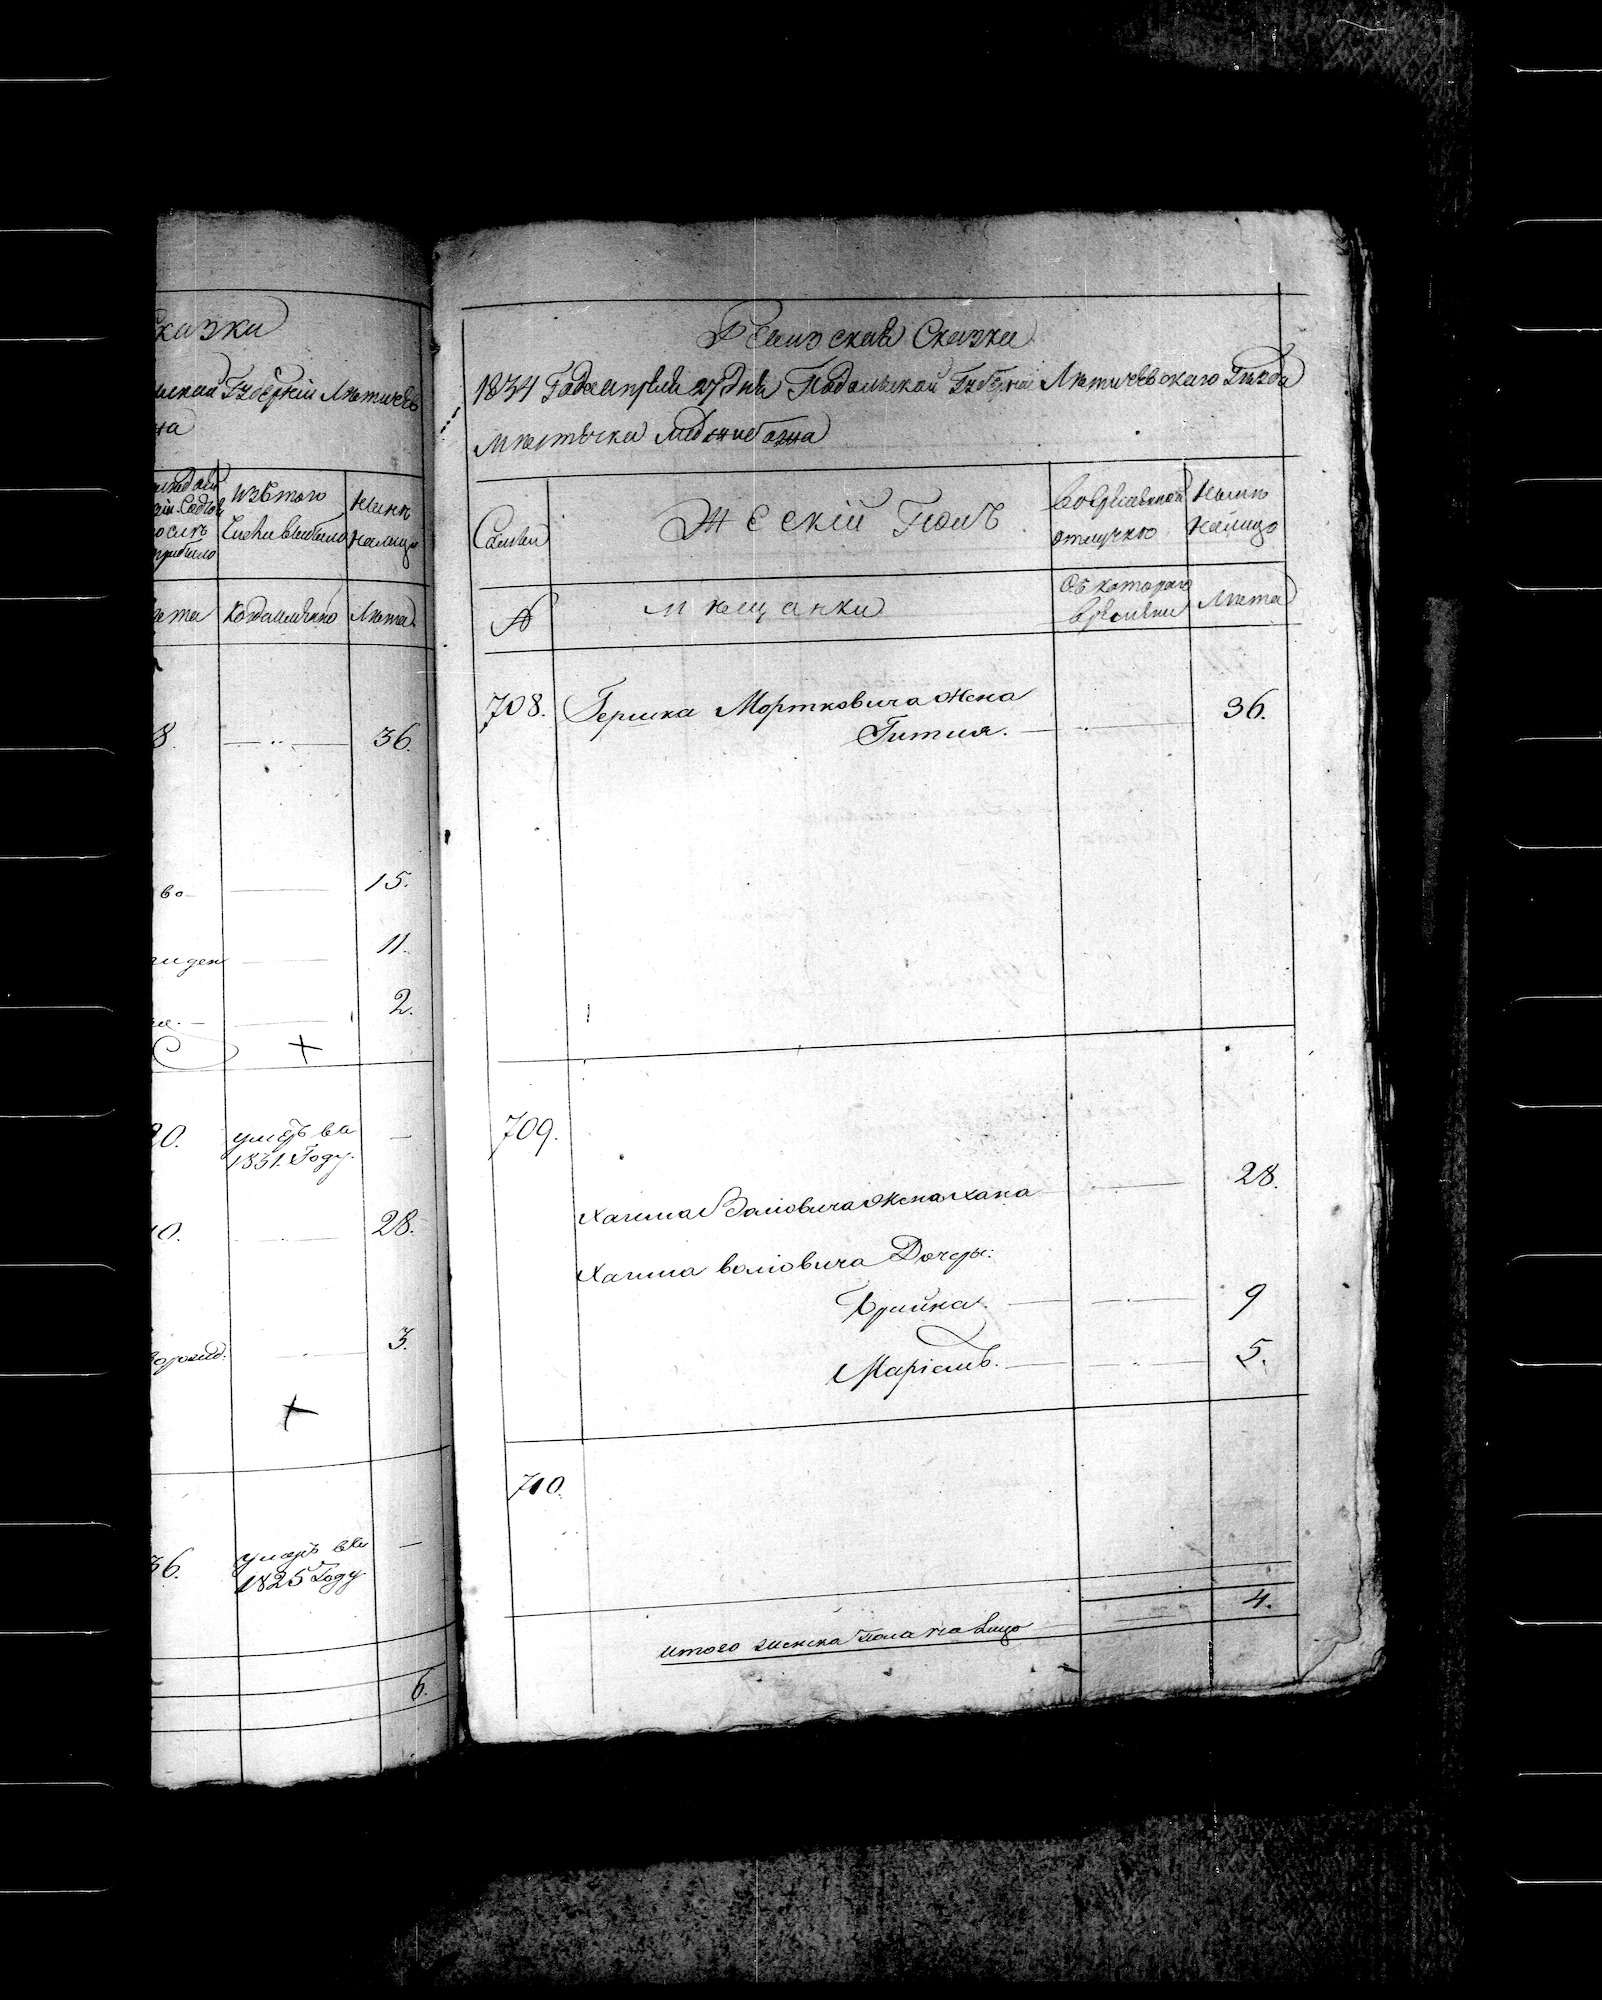 Сказки
Губернiи Летичев
на
изъ того
числа выбыло
Нынѣ
налицо
лѣта
Когда имянно
Лѣта
8.
36.
во
15.
11.
2.
умеръ въ
1831. Году.
28.
3.
36.
умеръ въ
1825 Году
6.
Ревизская Сказка
1834 Года Апреля 27 Дня Подольской Губернiи Летичевскаго Повѣта
мѣстечка Меджибожа
Семьи
Женскiй Полъ
Во временной
отлучкѣ
Нынѣ
налицо
№
мѣщанки
Съ котораго
времени
Лѣта
708. Гершка Мортковича жена
Гитля. 36.
709.
Хаима Волiовича жена Хана 28.
Хаима волiовича Дочеры:
Брайна. 9
Марiемъ. 5.
710.
итого женска пола на лицо 4.